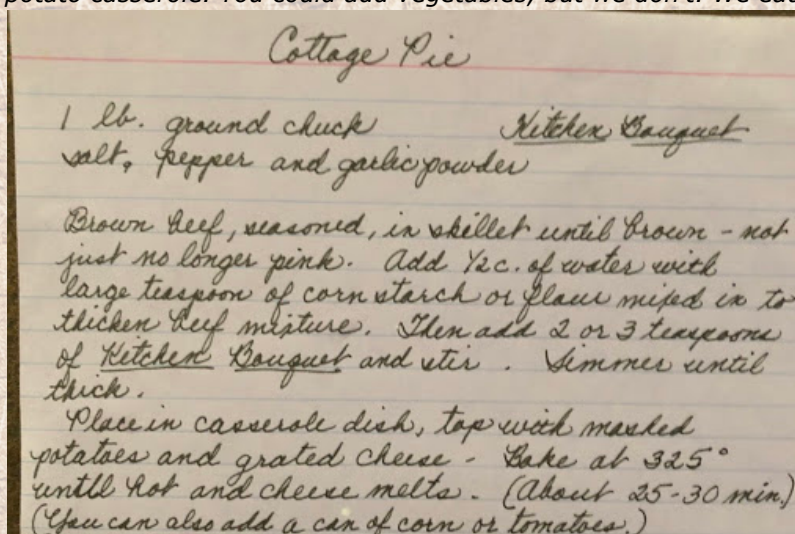 potato casserole. You could add vegetables, but we don't. We eat
Cottage Pie
1 lb. ground chuck Kitchen Bouquet
salt, pepper and garlic powder
Brown beef, seasoned, in skillet until brown - not
just no longer pink. Add 1/2 c. of water with
large teaspoon of corn starch or flour mixed in to
thicken beef mixture. Then add 2 or 3 teaspoons
of Kitchen Bouquet and stir. Simmer until
thick.
Place in casserole dish, top with mashed
potatoes and grated cheese - Bake at 325°
until hot and cheese melts. (About 25-30 min.)
(You can also add a can of corn or tomatoes.)